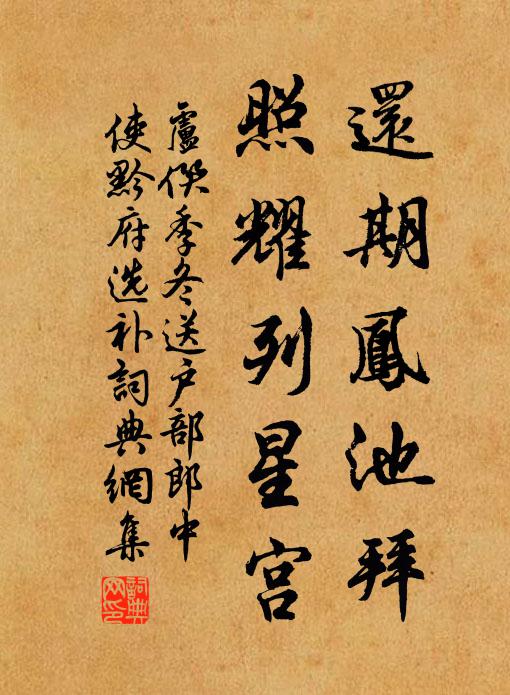 還期鳳池拜
照耀列星宮
盧僎季冬送戶部郎中
使黔府选补詞典網集
詞典網印